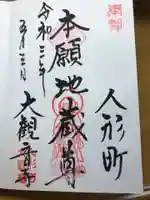 奉拝
人形町
本願地蔵尊
大観音寺
令和三年
五月三日